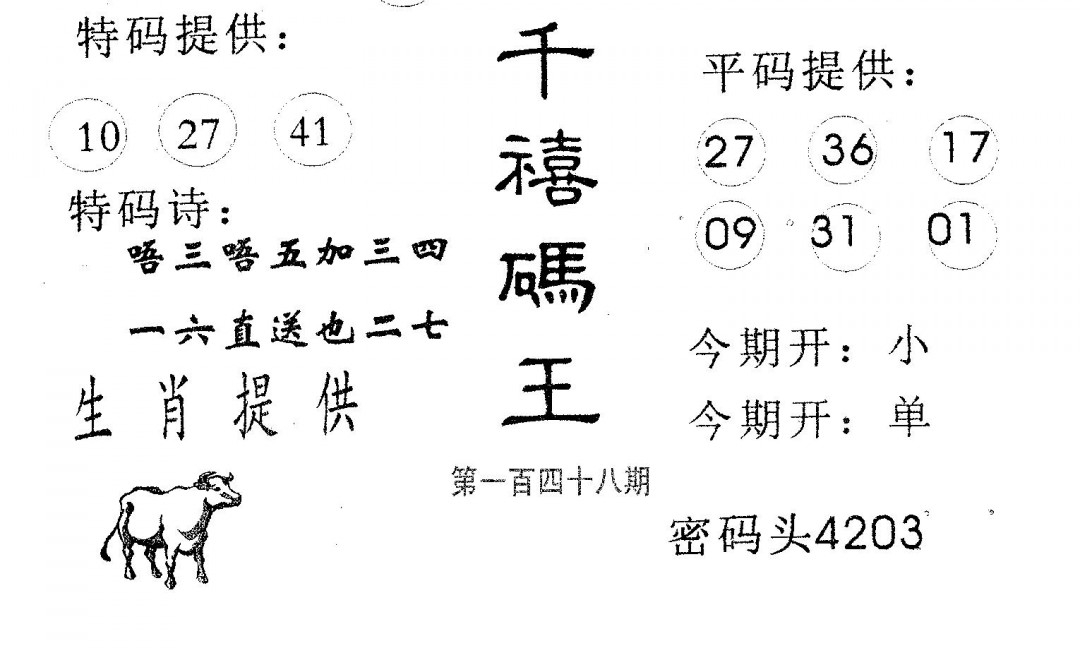 特码提供：
10 27 41
特码诗：
唔三唔五加三四
一六直送也二七
生肖提供
千禧碼王
第一百四十八期
平码提供：
27 36 17
09 31 01
今期开：小
今期开：单
密码头4203